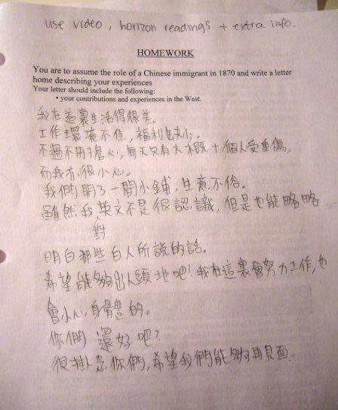 use video, horizon readings + extra info.
HOMEWORK
You are to assume the role of a Chinese immigrant in 1870 and write a letter
home describing your experiences
Your letter should include the following:
• your contributions and experiences in the West.
我在這裏生活得很
工作環境不佳，福利
不過不用擔心，每天只有大概十個人受重傷，
而我亦很小心。
我們開了一間小鋪，生意不俗。
雖然我英文不是很認識，但是也能略略
對
明白那些白人所說的話。
希望能夠出人頭地吧！我在這裏會努力工作，也
會小心身體的。
你們還好吧？
很掛念你們，希望我們能夠再見面。